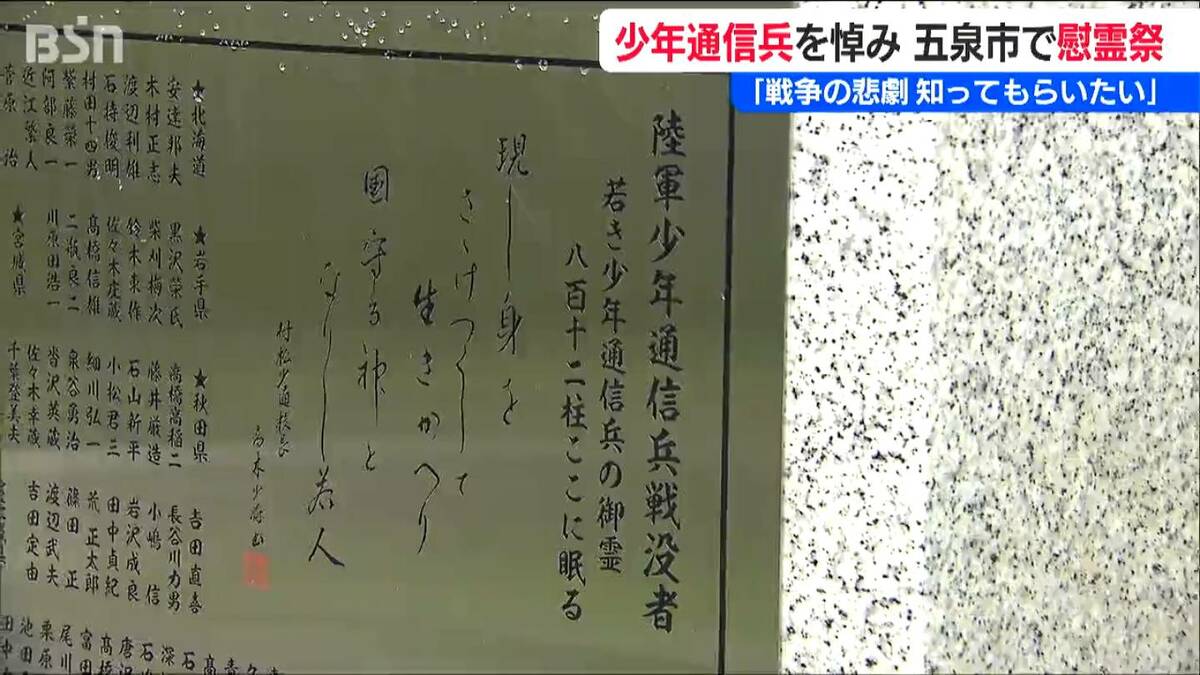 BSN
少年通信兵を悼み 五泉市で慰霊祭
「戦争の悲劇 知ってもらいたい」
陸軍少年通信兵戦没者
若き少年通信兵の御霊
八百十二柱ここに眠る
現し身を
さゝげつくして
生きかへり
国守る神と
なりし若人
村松少通校長
高木少将
★北海道
安達邦夫
木村正志
渡辺利雄
石持俊明
村田十四男
紫藤榮一
阿部良一
近江繁人
菅原 治
★岩手県
黒沢荣氏
柴刈梅次
鈴木東作
佐々木庄蔵
髙橋信雄
二瓶良二
川原田浩一
★宮城県
★秋田県
高橋高稲二
藤井厳造
石山新平
小松君三
細川弘一
泉谷勇治
沓沢英蔵
佐々木幸蔵
千葉登美夫
吉田直喜
長谷川力男
小嶋 信
岩沢成良
田中貞紀
荒 正太郎
篠田 正
渡辺武夫
吉田定由
深
石
唐沢
髙橋
富田
尾川
栗原
池田
田中